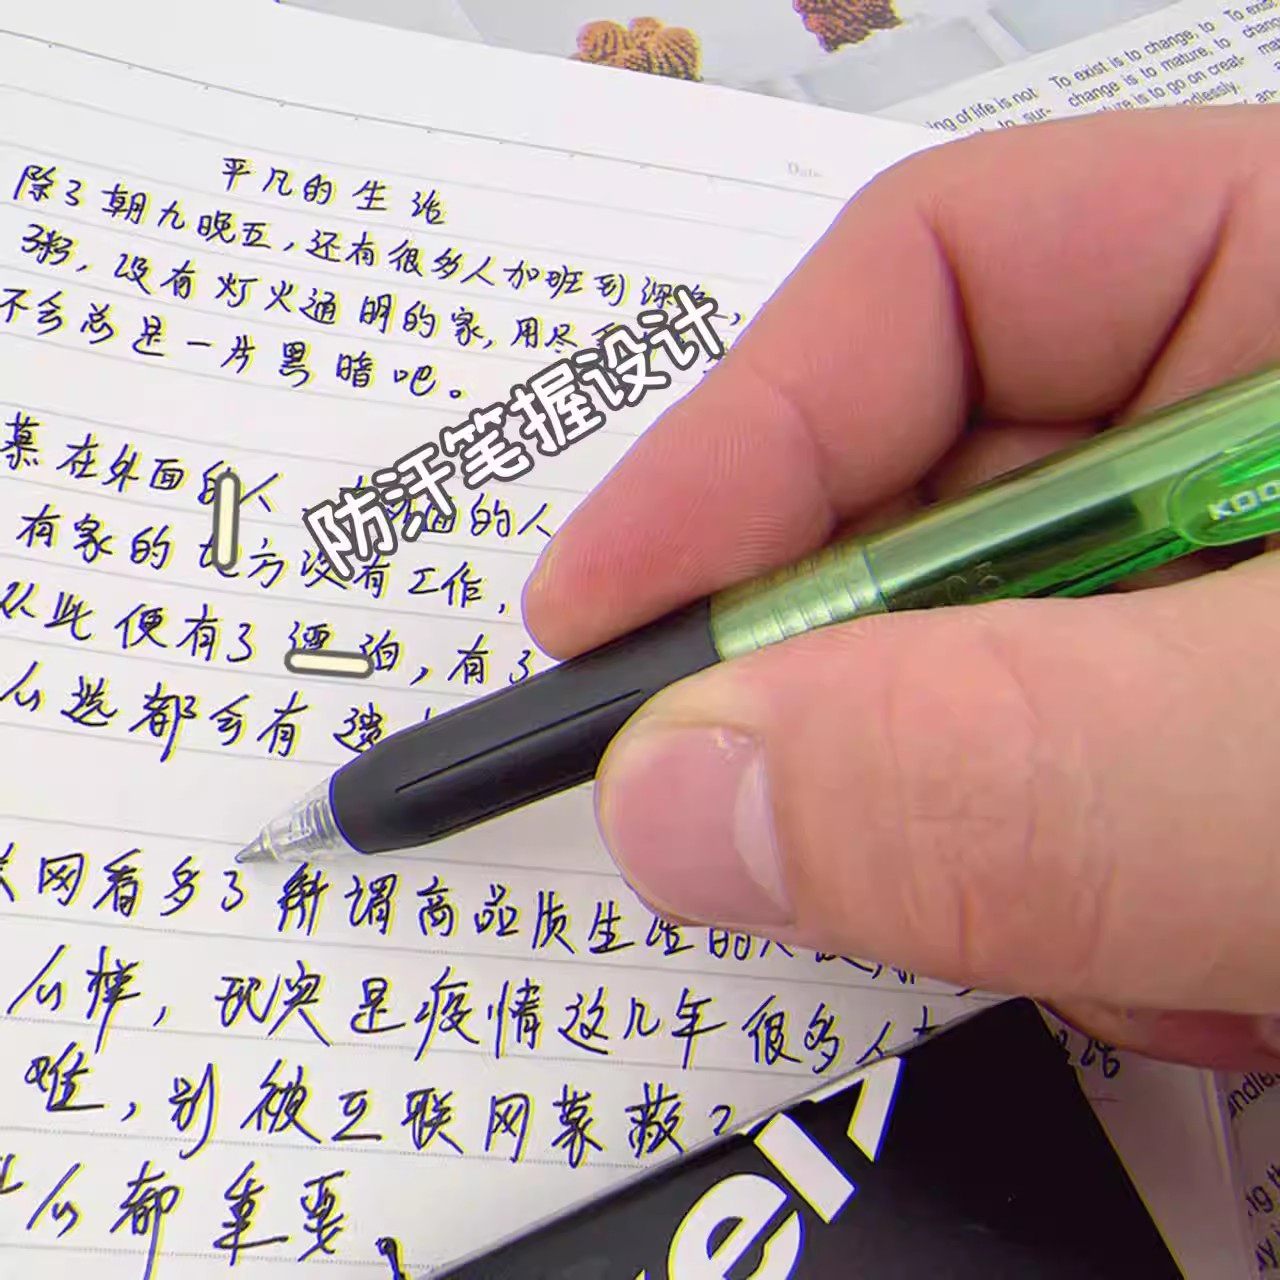 平凡的生活
除了朝九晚五,还有很多人加班到深
粥,没有灯火通明的家,用尽
不会总是一片黑暗吧。
防汗笔握设计
慕在外面的人
通的人
有家的地方没有工作,
从此便有了漂泊,有了
么选都会有遗
网看多了所谓高品质生活的人
么样,现实是疫情这几年很多人
难,别被互联网蒙蔽了
么都重要
KOO
0.5
Date
ing of life is not
To exist is to change, to
change is to mature, to
is to go on creat-
endlessly.
To exis
chang